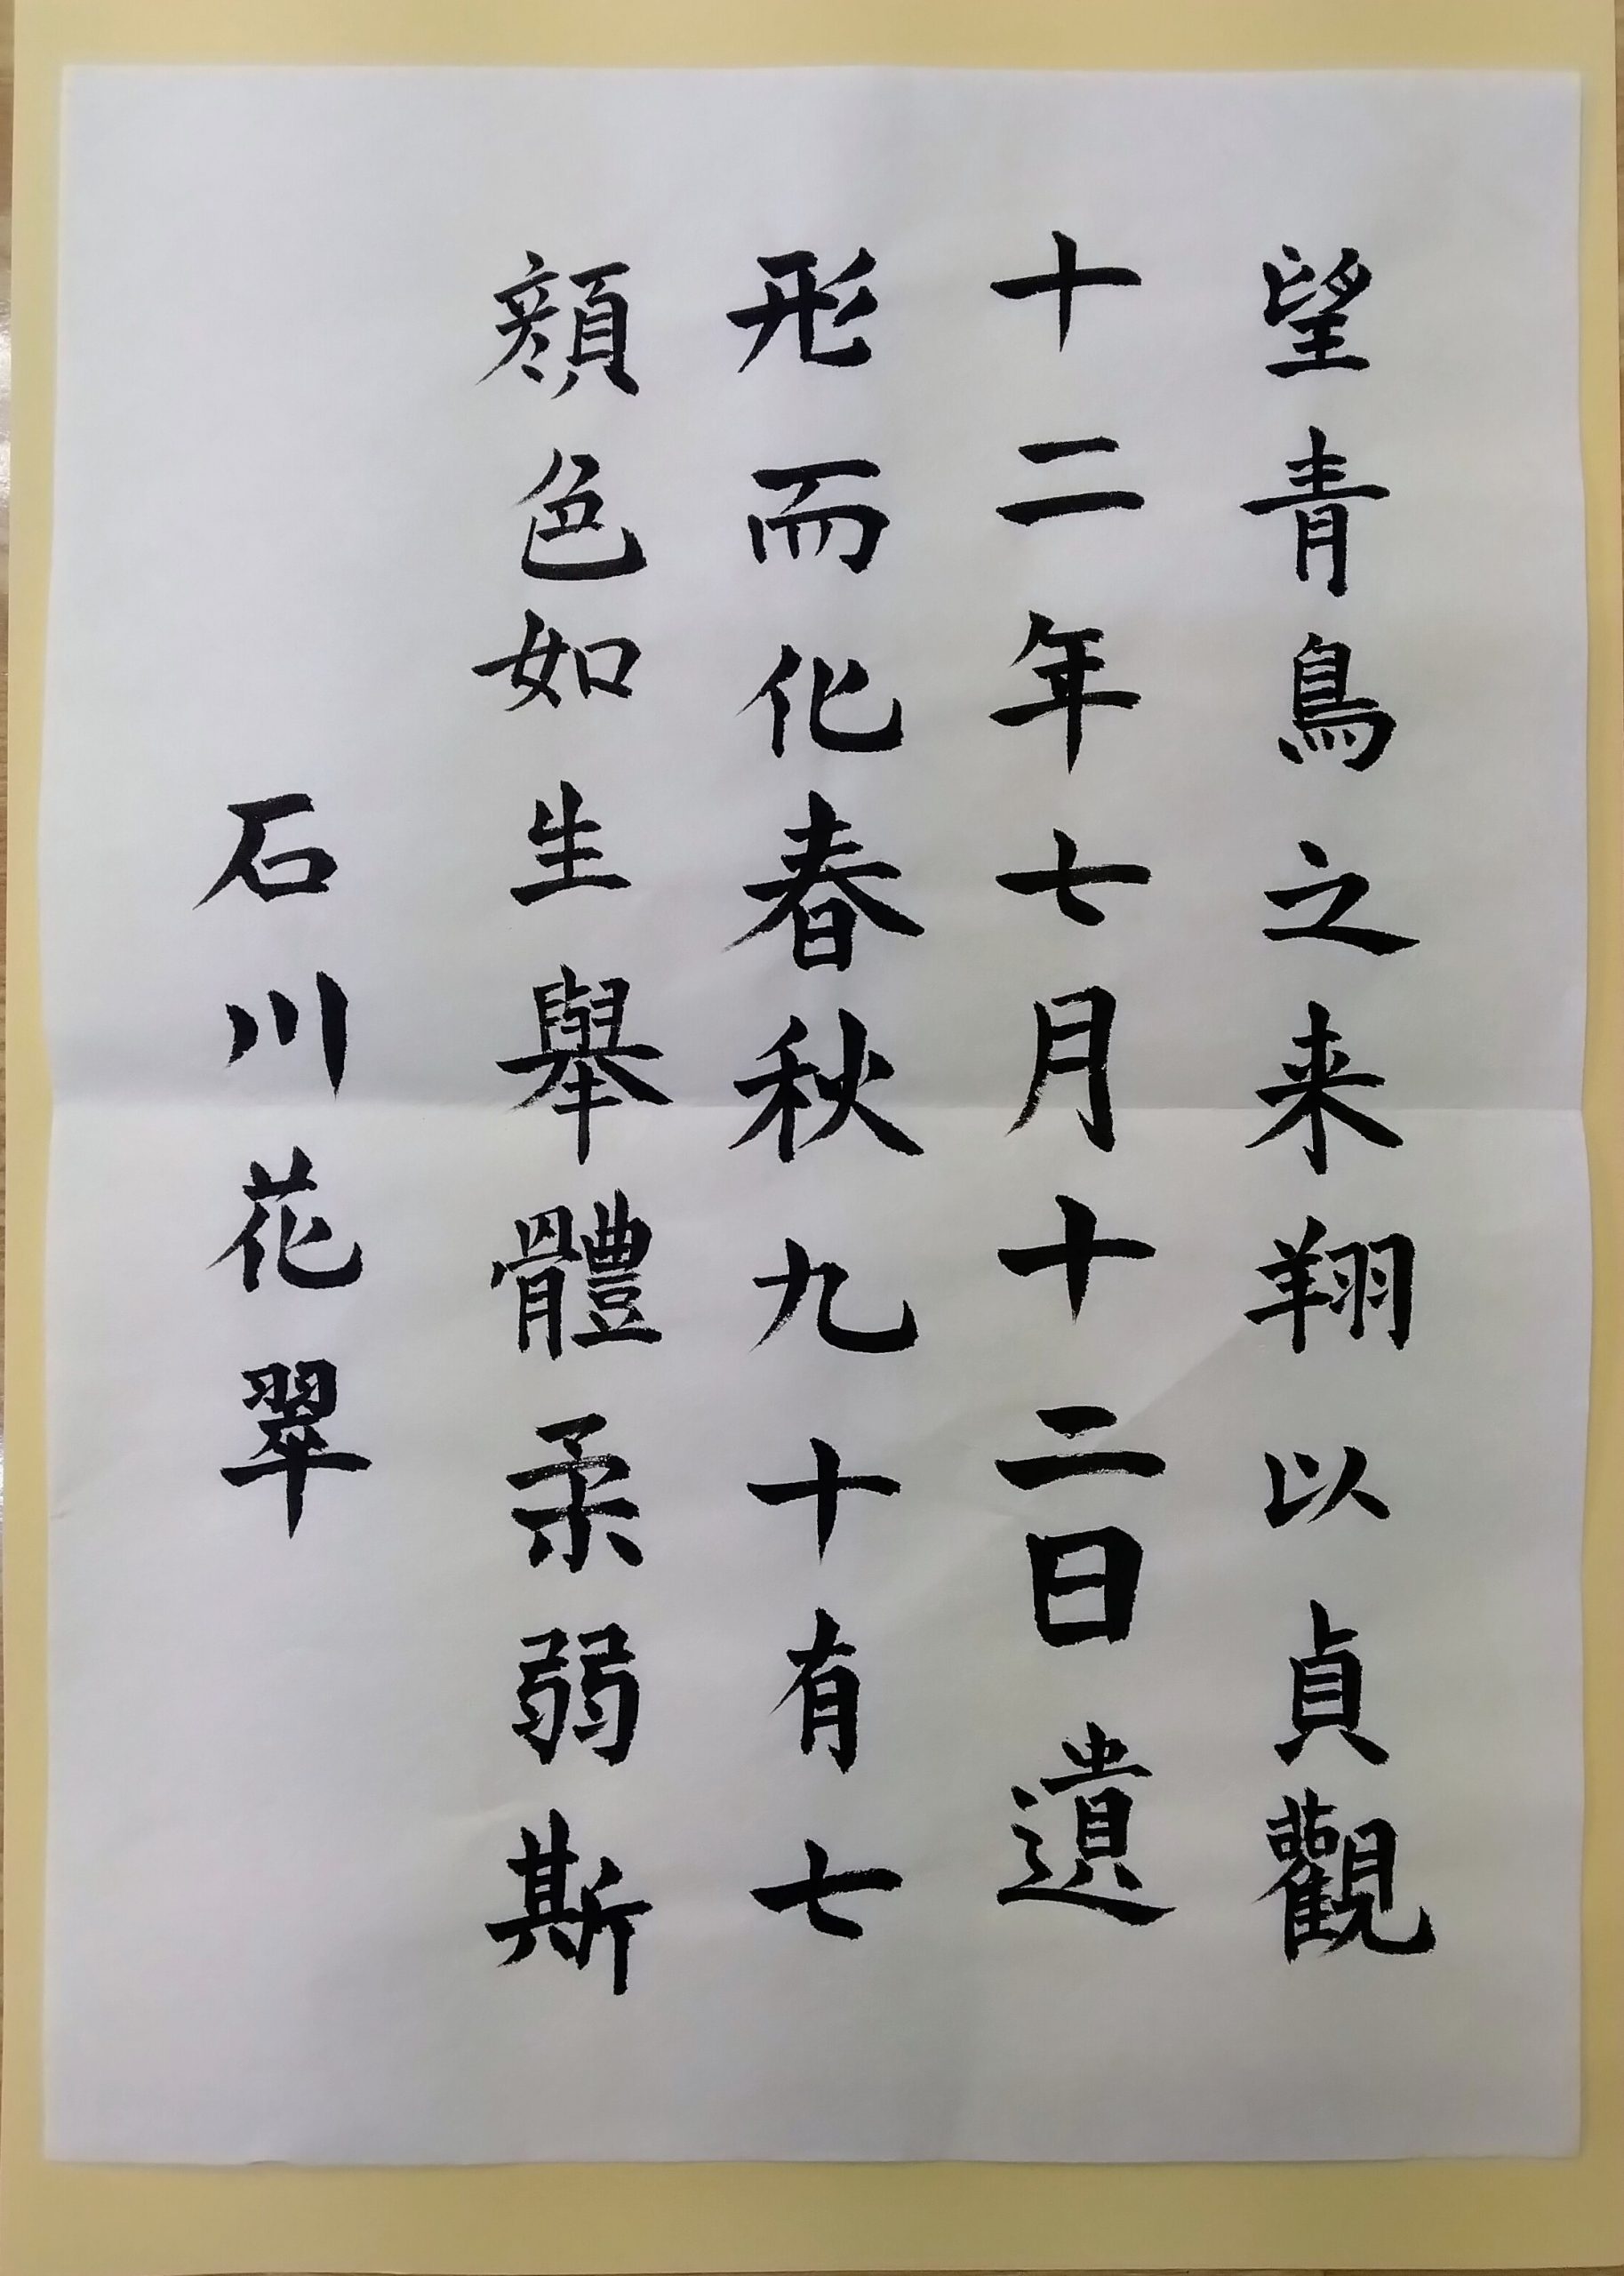 望青鳥之来翔以貞觀
十二年七月十二日遺
形而化春秋九十有七
顔色如生舉體柔弱斯
石川花翠